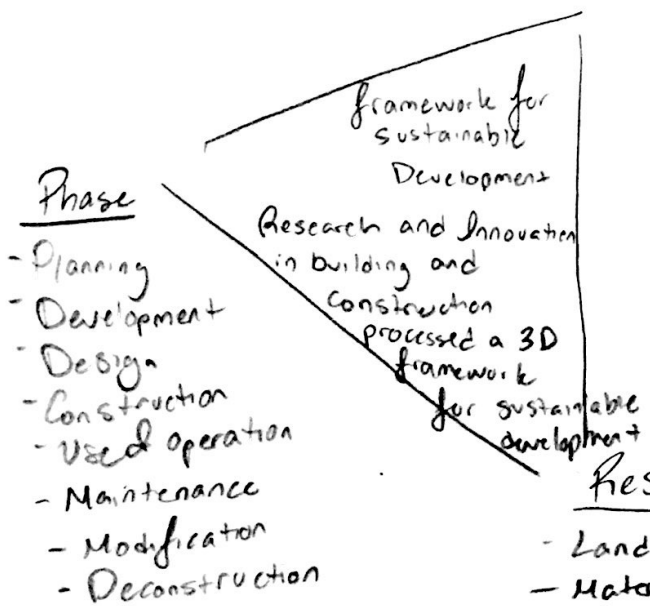 framework for
sustainable
Development
Research and Innovation
in building and
construction
processed a 3D
framework
for sustainable
development
Phase
- Planning
- Development
- Design
- Construction
- Used operation
- Maintenance
- Modification
- Deconstruction
Res
- Land
- Mate